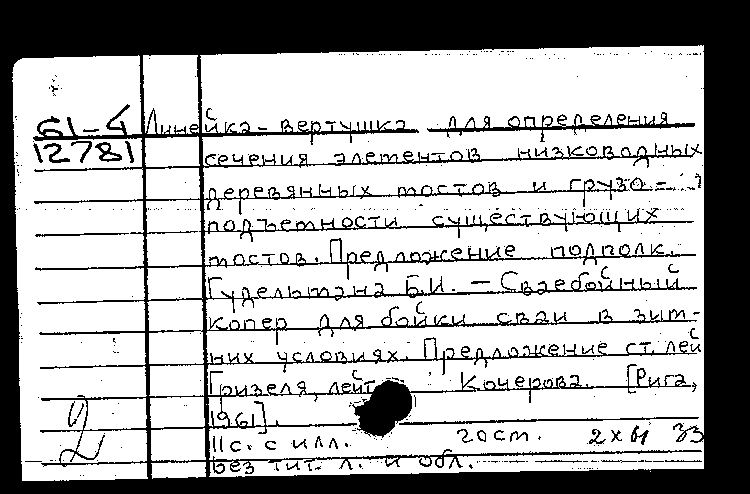 61-4 Линейка-вертушка для определения
12781 сечения элементов низководных
деревянных мостов и грузо-
подъемности существующих
мостов. Предложение подполк.
Гудельмана Б.И. — Сваебойный
копер для бойки свай в зим-
них условиях. Предложение ст. лей
Гризеля, лейт. Кочерова. [Рига,
1961].
11 с. с илл. 20 см. 2 х 61
без тит. л. и обл.
2